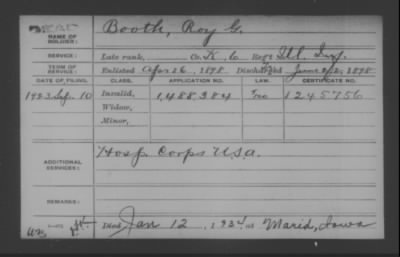 NAME OF SOLDIER: Booth, Roy G.
SERVICE: Late rank, Co. K, 6 Reg't Ill. Inf.
TERM OF SERVICE: Enlisted Apr 26, 1898, Discharged June 1898
DATE OF FILING. CLASS. APPLICATION NO. LAW. CERTIFICATE NO.
1923 Sep. 10 Invalid, 1,488,384 1245756
Widow,
Minor,
ADDITIONAL SERVICES: Hosp Corps U.S.A.
REMARKS:
Died Jan 12, 1934, at Iowa